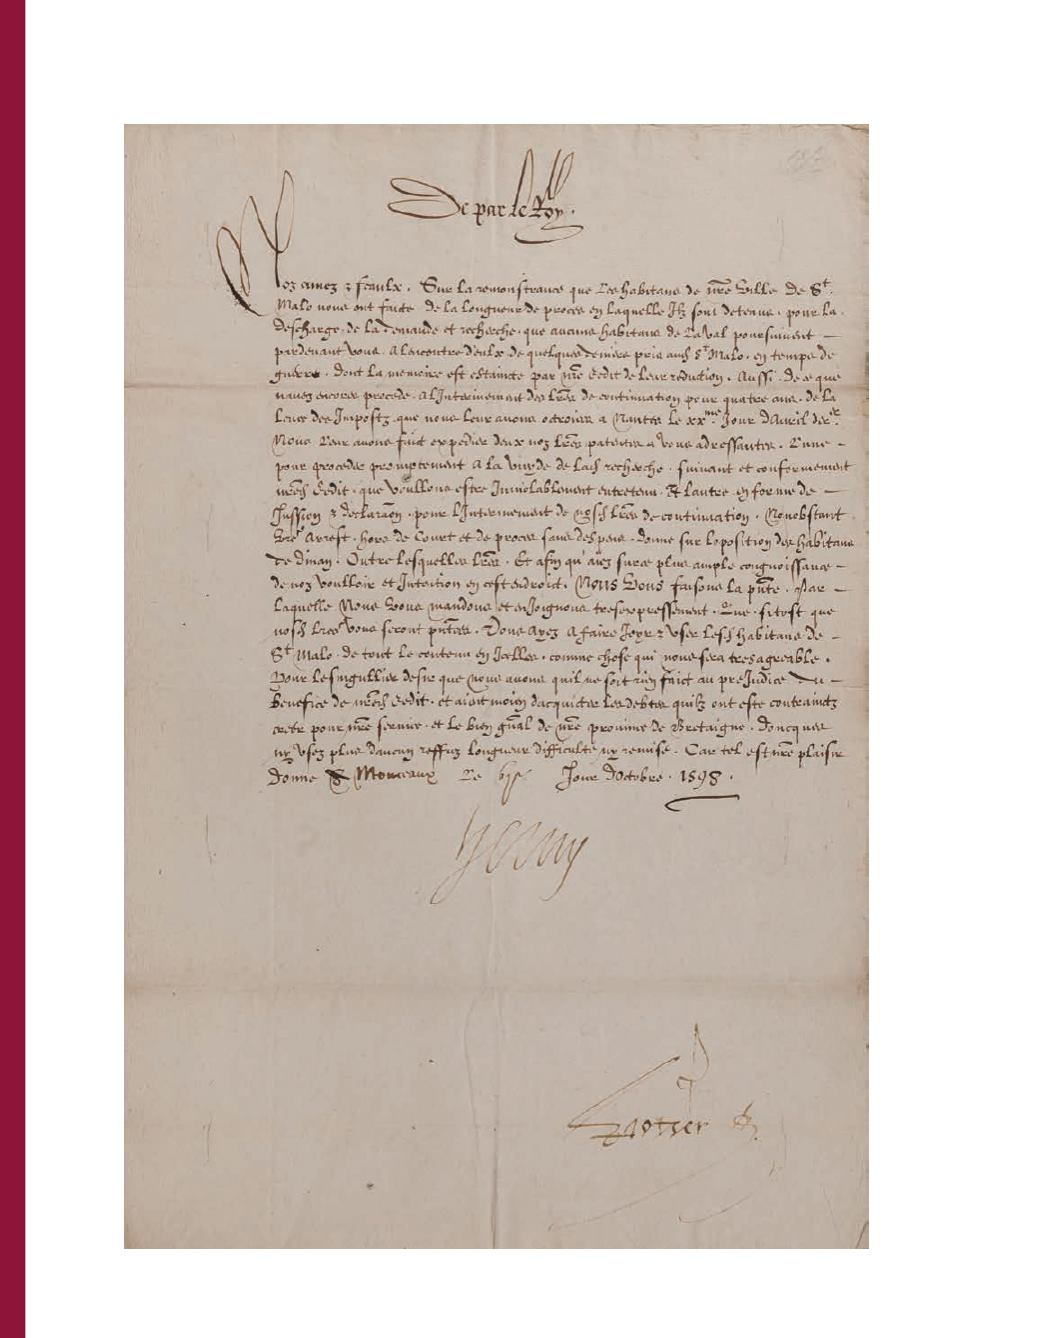 De par le Roy.
Noz amez & feaulx. Sur la remonstrance que Les habitans de nre Ville de St
Malo nous ont faicte de la longueur de proces en laquelle Ilz sont detenus. pour la
descharge. de la demande et recherche. que aucuns habitans de Laval poursuivent
pardevant Vous. A lencontre d'eulx de quelques deniers pris audt St Malo. en temps de
guerre. dont la memoire est estaincte par nre Eedit de leur reduction. Aussi. de ce que
navez encores procede. A l'Interinement des lres de continuation pour quatre ans. de la
Levee des Impostz. que nous leur avons octroiee a Nantes le xxme Jour d'Avril der.er
Nous Leur avons faict expedier deux noz lres patentes a vous adressantes. L'une
pour proceder promptement A la vuyde de ladt recherche. suivant et conformement
nredt Eedit. que voullons estre Inviolablement entretenu. Et lautre. en forme de
Jussion & declaraon. pour l'Interinement de nosdt lres de continuation. Nonobstant
vre Arrest. hors de Court et de proces sans despens. donne sur loposition des habitans
de dinan. Outre lesquelles lres. Et afin qu'aiez surce plus ample congnoissance
de noz voulloir et Intention en cest endroict. Nous Vous faisons la pnte. Par
laquelle Nous vous mandons et enJoignons tresexpressement. Que. sitost que
nosdt lres vous seront pntees. Vous Ayez A faire Joyr & User lesdt habitans de
St Malo. de tout le contenu en Icelles. comme chose qui nous sera tresagreable.
Pour le singullier desir que nous avons quil ne soit rien faict au preJudice du
benefice de nredt Eedit. et aient moien dacquicter les debtes quilz ont este contrainctz
creer pour nre service. et le bien gnal de nre province de Bretaigne. Doncques
ny Usez plus daucun reffuz longueur difficulte ny remise. Car tel est nre plaisir
Donne A Monceaux Le Jour dOctobre. 1598.
Henry
Potier